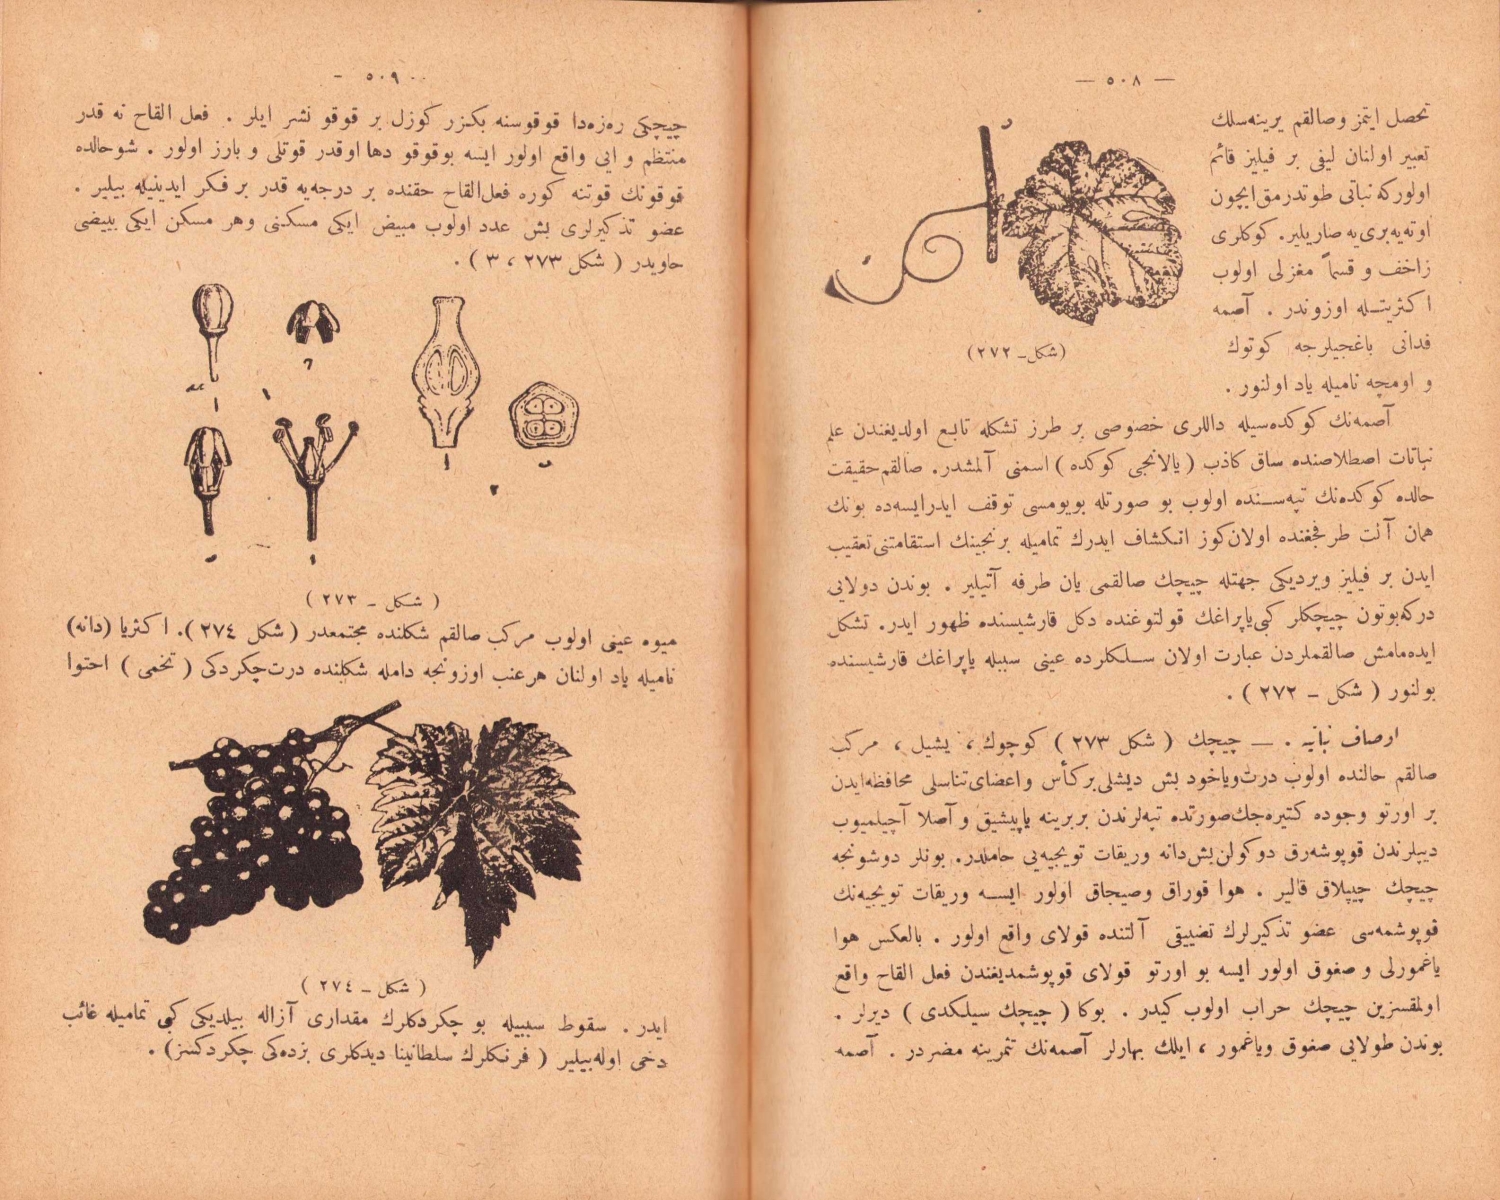 — ٥٠٨ —
تحصل ايتمز وصالقم يرينه‌سلك
تعبير اولنان ليفى بر فيليز قائم
اولوركه نباتى طوتدرمق‌ايچون
اوته‌يه‌برى‌يه صاريلير. كوكلرى
زاخف و قسماً مغزلى اولوب
اكثريتـله اوزوندر . آصمه
فدانى باغجيلرجه كوتوك
و اومچه ناميله ياد اولنور .
(شكل ـ ٢٧٢)
آصمه‌نك كوكده‌سيله داللرى خصوصى بر طرز تشكله تابع اولديغندن علم
نباتات اصطلاصنده ساق كاذب ( يالانجى كوكده ) اسمنى آلمشدر. صالقم‌حقيقت
حالده كوكده‌نك تپه‌سـنده اولوب بو صورتله بويومسى توقف ايدرايسه‌ده بونك
همان آلت طرفجغنده اولان‌كوز انكشاف ايدرك تماميله برنجينك استقامتنى‌تعقيب
ايدن بر فيليز ويرديكى جهتله چيچك صالقمى يان طرفه آتيلير . بوندن دولايى
دركه‌بوتون چيچكلر كبى‌ياپراغك قولتوغنده دكل قارشيسنده ظهور ايدر. تشكل
ايده‌مامش صالقملردن عبارت اولان سـلكلرده عينى سببله ياپراغك قارشيسنده
بولنور ( شكل ـ ٢٧٢ ) .
اوصاف نباتيه . — چيچك ( شكل ٢٧٣ ) كوچوك ، يشيل ، مركب
صالقم حالنده اولوب درت‌وياخود بش ديشلى‌بركأس واعضاى‌تناسلى محافظه‌ايدن
بر اورتو وجوده كتيره‌جك‌صورتده تپه‌لرندن بربرينه ياپيشيق و آصلا آچيلميوب
ديپلرندن قوپوشه‌رق دوكولن‌بش‌دانه وريقات تويجيه‌يى حاملدر. بونلر دوشونجه
چيچك چيپلاق قالير . هوا قوراق وصيجاق اولور ايسـه وريقات تويجيه‌نك
قوپوشمه‌سى عضو تذكيرلرك تضييقى آلتنده قولاى واقع اولور . بالعكس هوا
ياغمورلى و صغوق اولور ايسه بو اورتو قولاى قوپوشمديغندن فعل القاح واقع
اولمقسزين چيچك حراب اولوب كيدر . بوكا ( چيچك سيلكدى ) ديرلر .
بوندن طولايى صغوق وياغمور ، ايلك بهارلر آصمه‌نك تثمرينه مضردر . آصمه
— ٥٠٩ —
چيچكى ره‌زه‌دا قوقوسنه بكزر كوزل بر قوقو نشر ايلر . فعل القاح نه قدر
منتظم و ايى واقع اولور ايسه بوقوقو دها اوقدر قوتلى و بارز اولور . شوحالده
قوقونك قوتنه كوره فعل‌القاح حقنده بر درجه‌يه قدر بر فكر ايدينيله بيلير .
عضو تذكيرلرى بش عدد اولوب مبيض ايكى مسكنى وهر مسكن ايكى بيضى
حاويدر ( شكل ٢٧٣ ، ٣ ) .
( شكل ـ ٢٧٣ )
ميوه عينى اولوب مركب صالقم شكلنده مجتمعدر ( شكل ٢٧٤ ). اكثريا (دانه)
ناميله ياد اولنان هرعنب اوزونجه دامله شكلنده درت‌چكردكى ( تخمى ) احتوا
( شكل ـ ٢٧٤ )
ايدر . سقوط سببيله بو چكردكلرك مقدارى آزاله بيلديكى كبى تماميله غائب
دخى اوله‌بيلير ( فرنكلرك سلطانينا ديدكلرى بزده‌كى چكردكسز) .